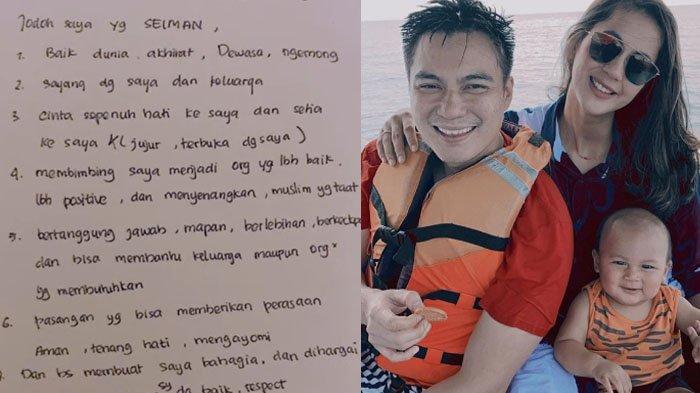 Jodoh saya yg SEIMAN,
1. Baik dunia akhirat, Dewasa, ngemong
2. sayang dg saya dan keluarga
3 cinta sepenuh hati ke saya dan setia
ke saya (jujur, terbuka dg saya)
4. membimbing saya menjadi org yg lbh baik,
lbh positive, dan menyenangkan, muslim yg taat
5. bertanggung jawab, mapan, berlebihan,
dan bisa membantu keluarga maupun org"
yg membutuhkan
6. pasangan yg bisa memberikan perasaan
Aman, tenang hati, mengayomi
Dan bs membuat saya bahagia, dan dihargai
baik, respect